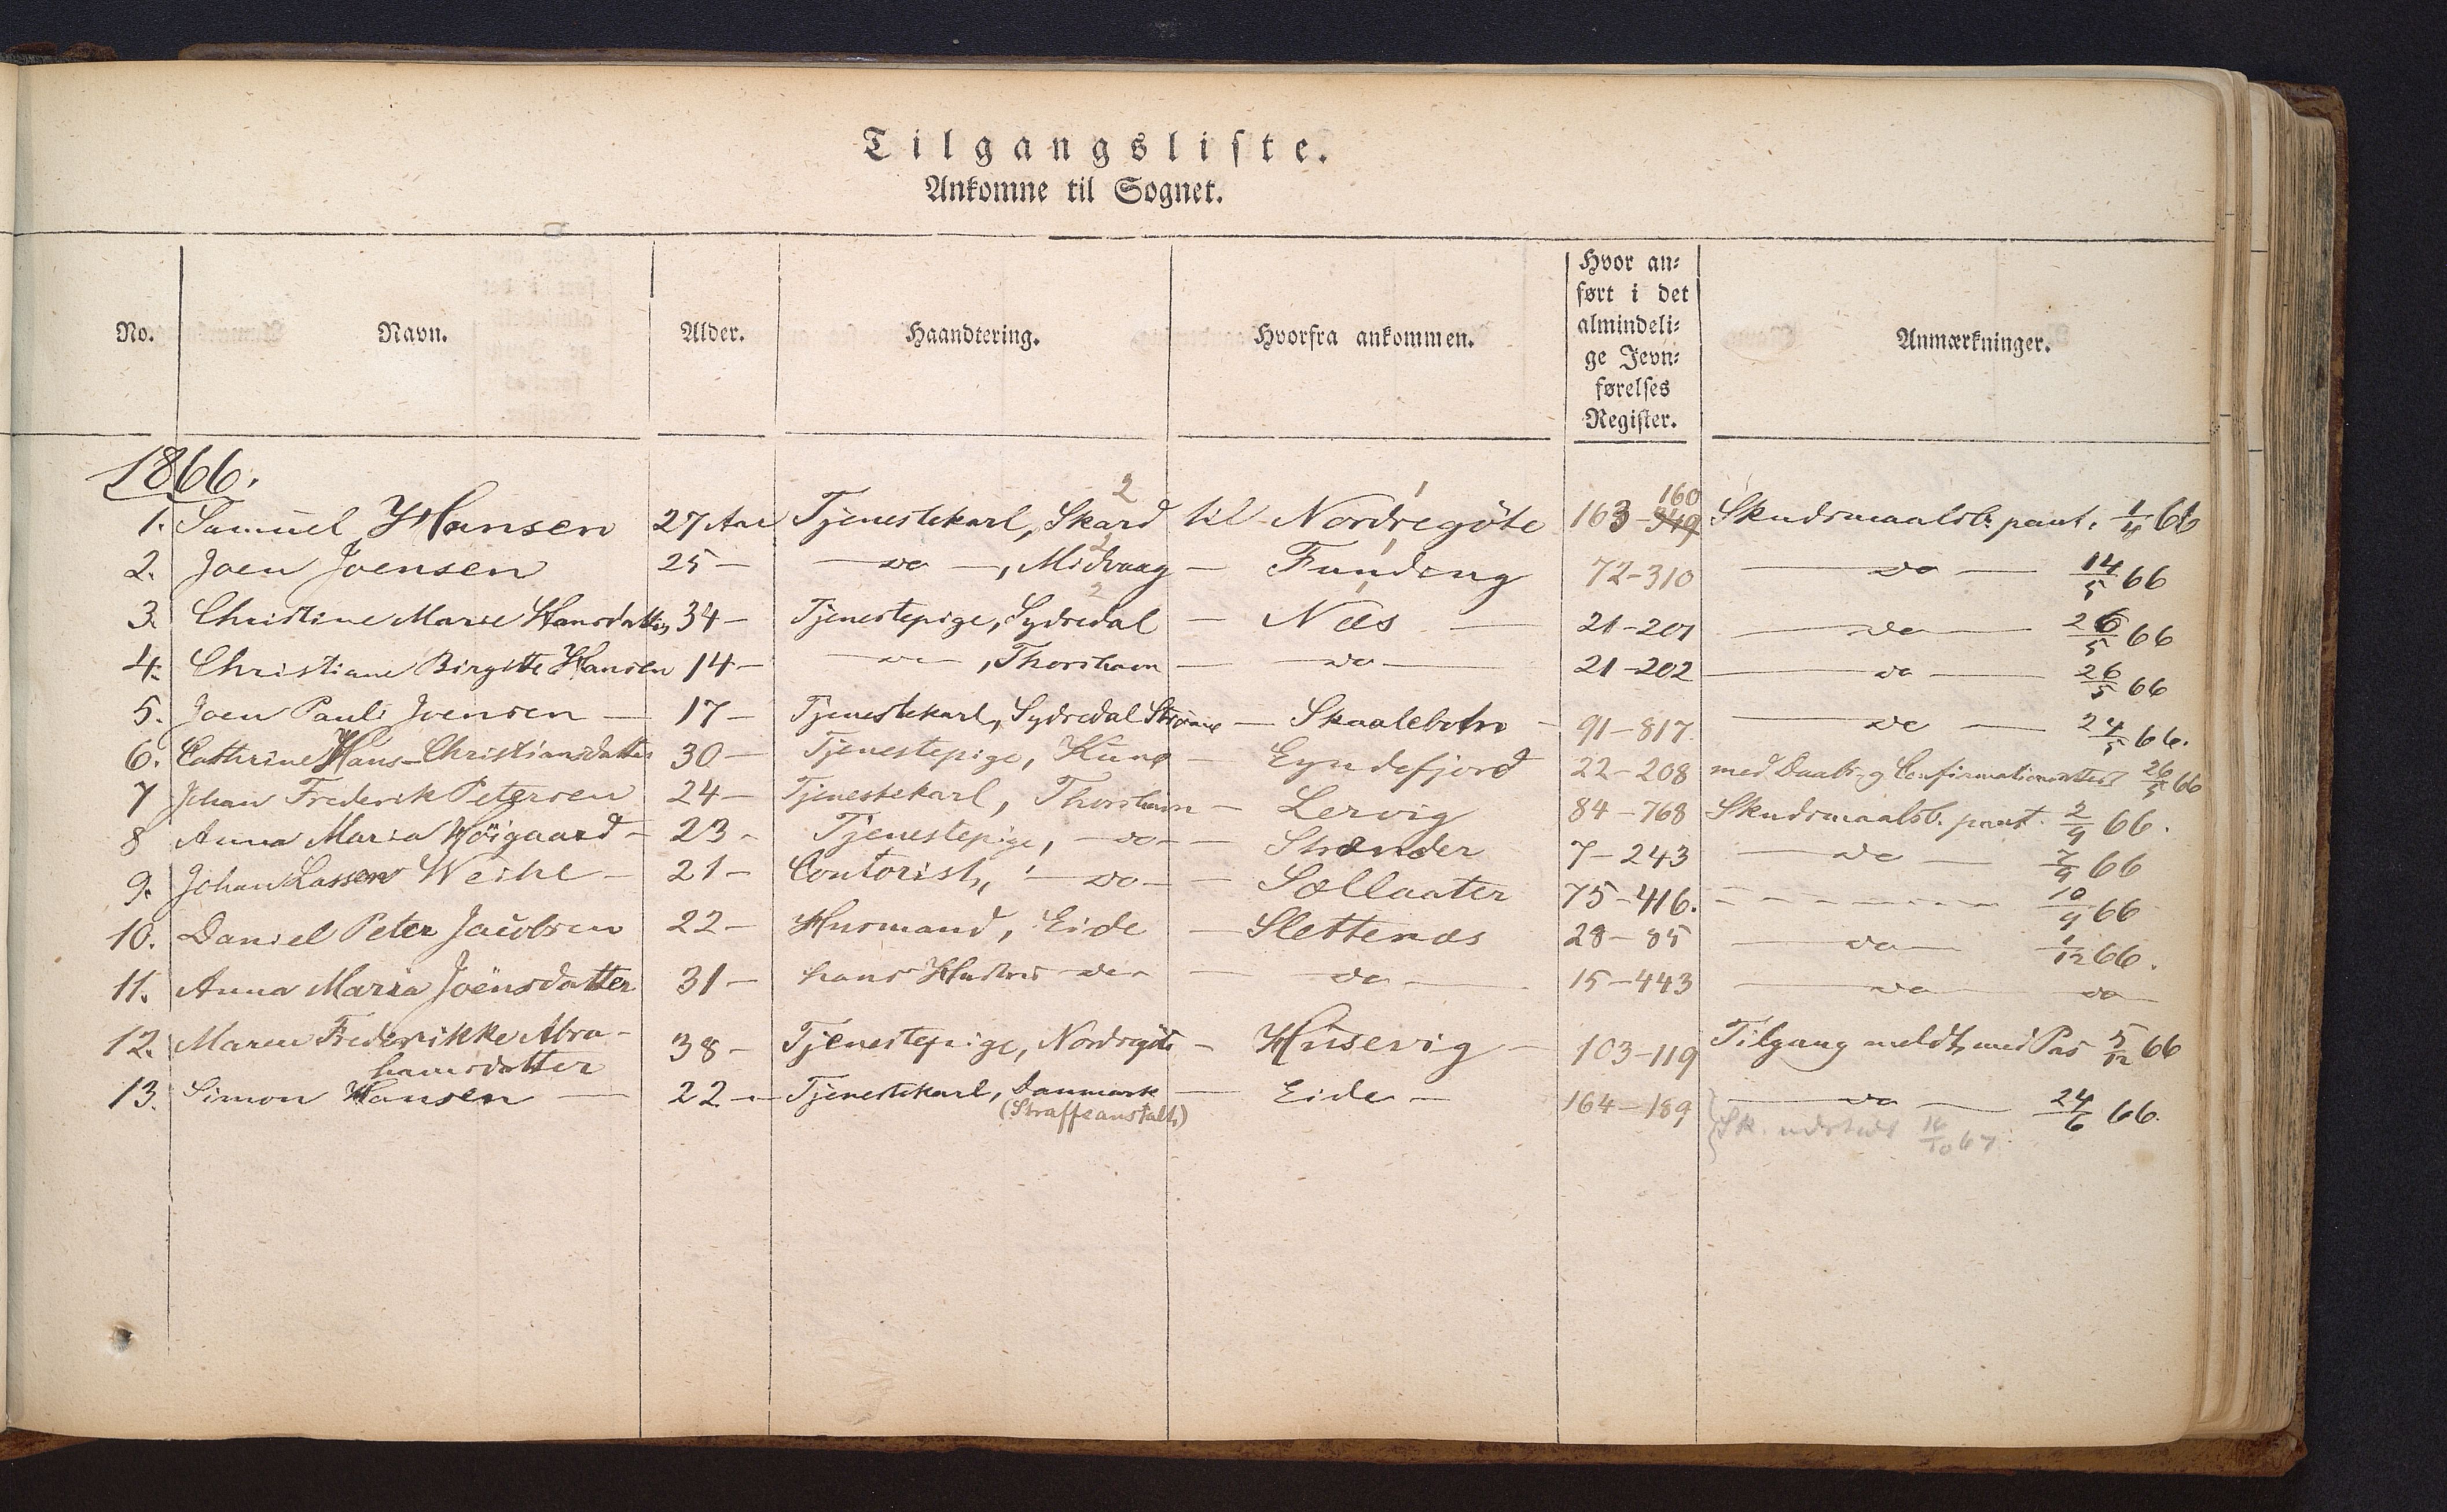 Tilgangsliste.
Ankomne til Sognet.
No. Navn. Alder. Haandtering. Hvorfra ankommen. Hvor an- ført i det almindeli- ge Jevn- førelses Register. Anmærkninger.
1866.
2 1 160
1. Samuel J Hansen 27 Aar Tjenestekarl, Skard til Nordregöte 163-349 Skudsmaalsb. paat. 1/4 66
2 1
2. Joen Joensen 25 — do —, Midvaag — Funding 72-310 — do — 14/5 66
2 1
3. Christine Marie Hansdatter 34 — Tjenestepige, Sydredal — Næs — 21-201 — do — 26/5 66
4. Christiane Birgitte Hansen 14 — do —, Thorshavn — do — 21-202 — do — 26/5 66
5. Joen Pauli Joensen — 17 — Tjenestekarl, Sydredal Strömø — Skaalebotn — 91-817. — do — 24/5 66.
6. Cathrine Hans-Christiansdatter 30 — Tjenestepige, Kunø — Eyndefjord 22-208 med Daabs- og Confirmationsattest 26/5 66
7 Johan Frederik Petersen 24 — Tjenestekarl, Thorshavn — Lervig 84-768 Skudsmaalsb. paat. 2/9 66.
8 Anna Maria Höigaard — 23 — Tjenestepige, — do — — Strænder 7-243 — do — 7/9 66
9. Johan Lassen Weihe — 21 — Contorist, — do — — Sællaater 75-416. - - - - - - 10/9 66
10. Daniel Peter Jacobsen 22 — Husmand, Eide — Slettenæs 28-85 — do — 1/12 66.
11. Anna Maria Joënsdatter 31 — hans Hustru do — — do — 15-443 — do — do —
12. Maren Frederikke Abra- 38 — Tjenestepige, Nordregöte — Husevig — 103-119 Tilgang meldt, med Pas 5/12 66
hamsdatter
13. Simon Hansen — 22 — Tjenestekarl, Danmark — Eide — 164-189 — do — 24/6 66.
(Straffeanstalt) Sk. udstedt 16/10 67.